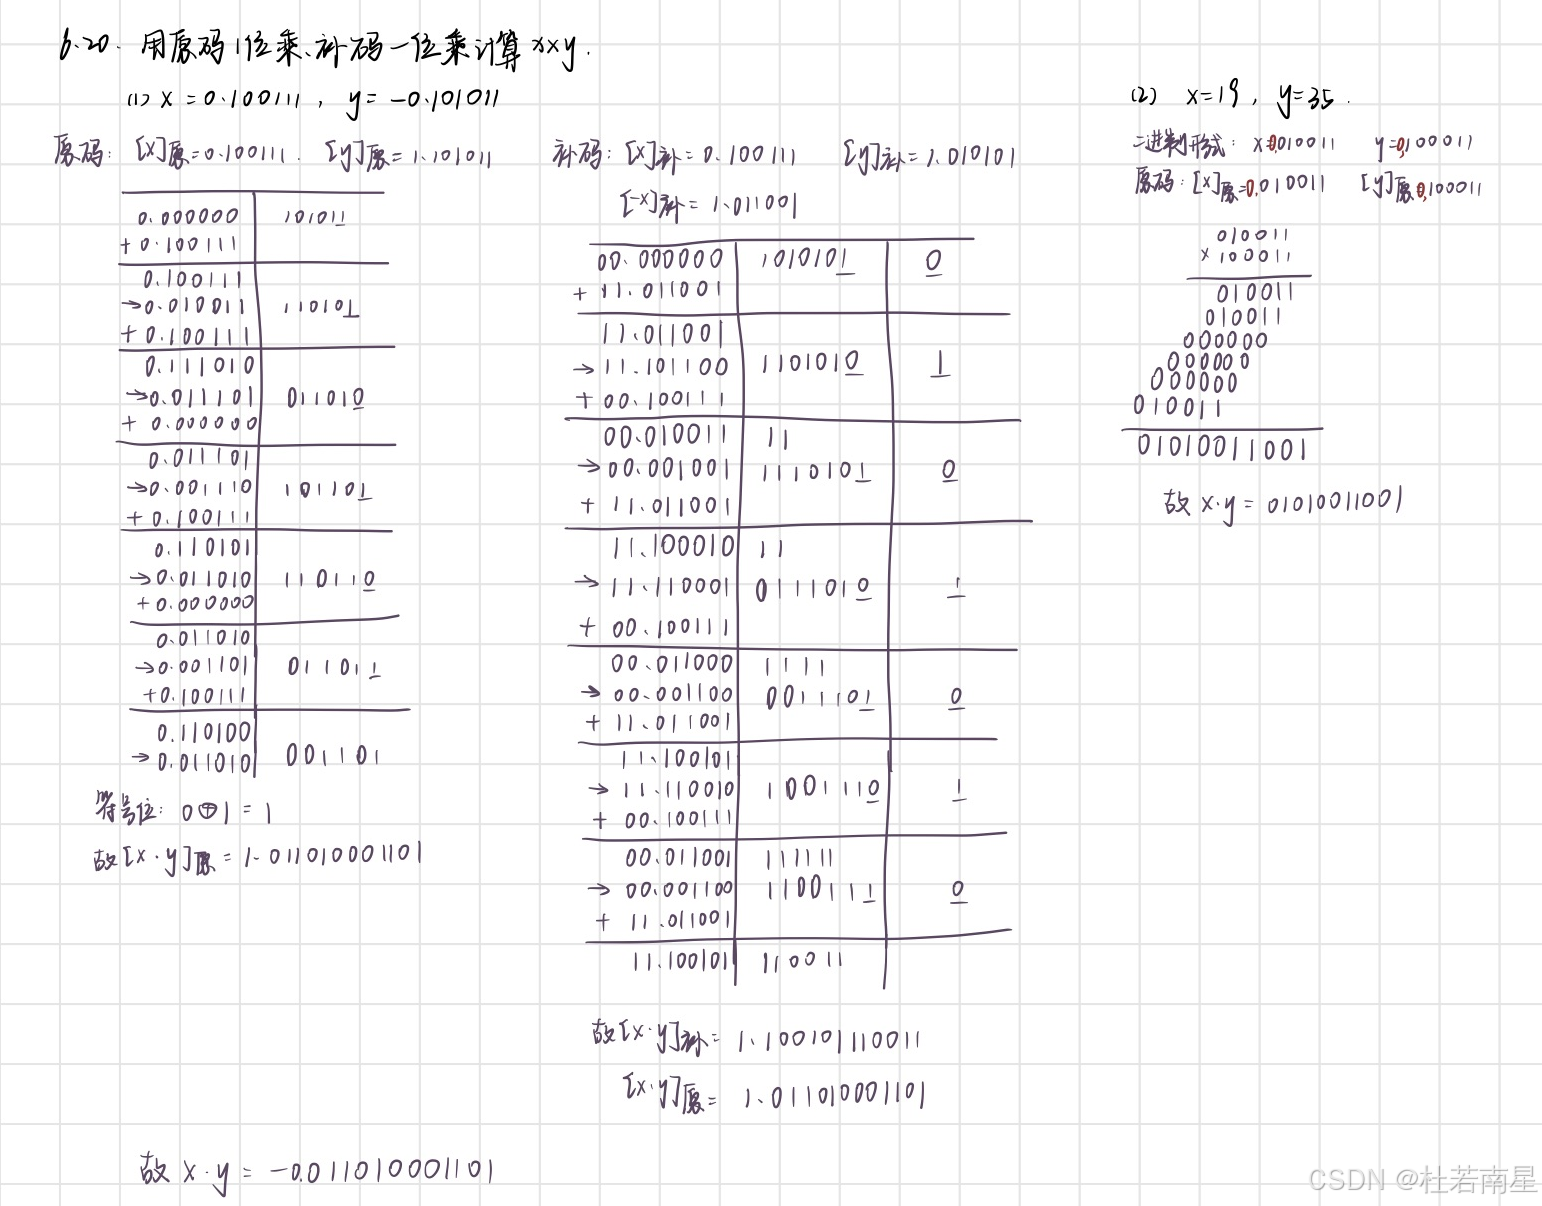 6.20. 用原码1位乘、补码一位乘计算 x×y.
(1) x = 0.100111 , y = -0.101011
原码: [x]原=0.100111. [y]原=1.101011
0.000000 101011
+ 0.100111
0.100111
→0.010011 110101
+ 0.100111
0.111010
→0.011101 011010
+ 0.000000
0.011101
→0.001110 101101
+ 0.100111
0.110101
→0.011010 110110
+0.000000
0.011010
→0.001101 011011
+0.100111
0.110100
→0.011010 001101
符号位: 0⊕1 = 1
故[x·y]原 = 1.011010001101
补码: [x]补=0.100111 [y]补=1.010101
[-x]补=1.011001
00.000000 1010101 0
+ 11.011001
11.011001
→11.101100 1101010 1
+ 00.100111
00.010011 11
→00.001001 1110101 0
+ 11.011001
11.100010 11
→11.110001 0111010 1
+ 00.100111
00.011000 1111
→00.001100 0011101 0
+ 11.011001
11.100101
→11.110010 1001110 1
+ 00.100111
00.011001 111111
→00.001100 1100111 0
+ 11.011001
11.100101 110011
故[x·y]补= 1.100101110011
[x·y]原= 1.011010001101
故 x·y = -0.011010001101
(2) x=19, y=35.
二进制形式: x=0,010011 y=0,100011
原码: [x]原=0,010011 [y]原=0,100011
010011
× 100011
010011
010011
000000
000000
000000
010011
01010011001
故 x·y = 01010011001
CSDN @杜若南星